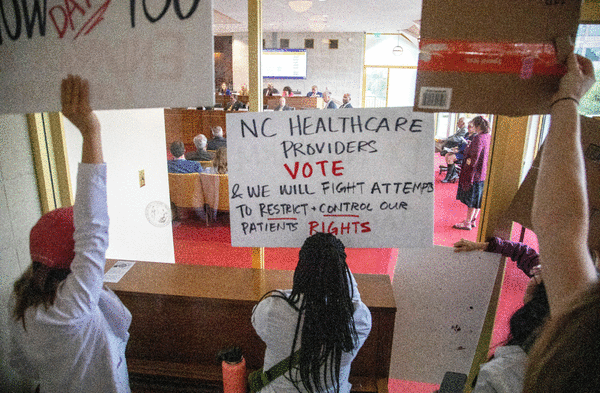 NOW DARE YOU
NC HEALTHCARE
PROVIDERS
VOTE
& WE WILL FIGHT ATTEMPTS
TO RESTRICT + CONTROL OUR
PATIENTS RIGHTS